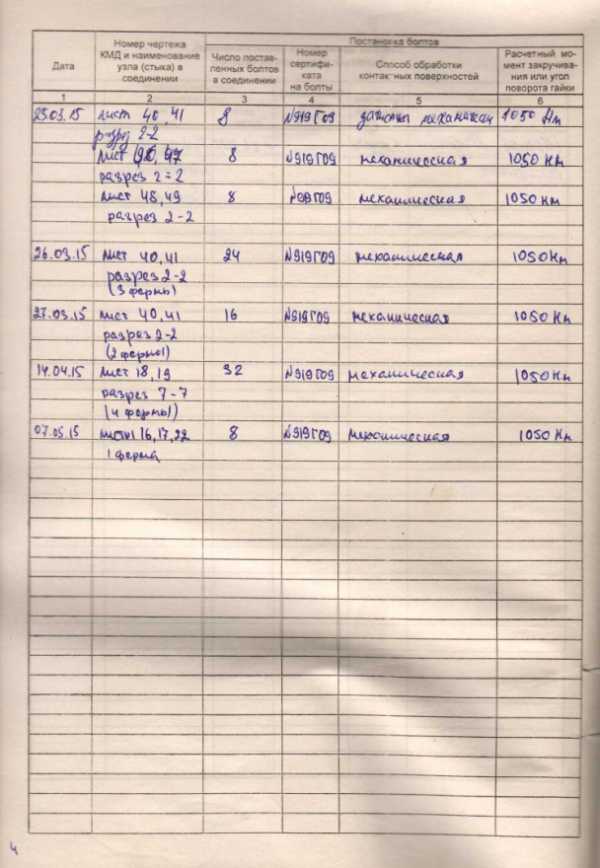 Постановка болтов
Дата
Номер чертежа КМД и наименование узла (стыка) в соединении
Число постав- ленных болтов в соединении
Номер сертифи- ката на болты
Способ обработки контактных поверхностей
Расчетный мо- мент закручива- ния или угол поворота гайки
1 2 3 4 5 6
23.03.15 лист 40,41 8 N919Г09 механическая 1050 Нм
разрез 2-2
лист 47 8 N919Г09 механическая 1050 Нм
разрез 2-2
лист 48,49 8 механическая 1050 Нм
разрез 2-2
26.03.15 лист 40,41 24 N919Г09 механическая 1050 Нм
разрез 2-2
(3 фермы)
27.03.15 лист 40,41 16 N919Г09 механическая 1050 Нм
разрез 2-2
(2 фермы)
14.04.15 лист 18,19 32 N919Г09 механическая 1050 Нм
разрез 7-7
(4 фермы)
07.05.15 16,17,22 8 N919Г09 механическая 1050 Нм
1 ферма
4